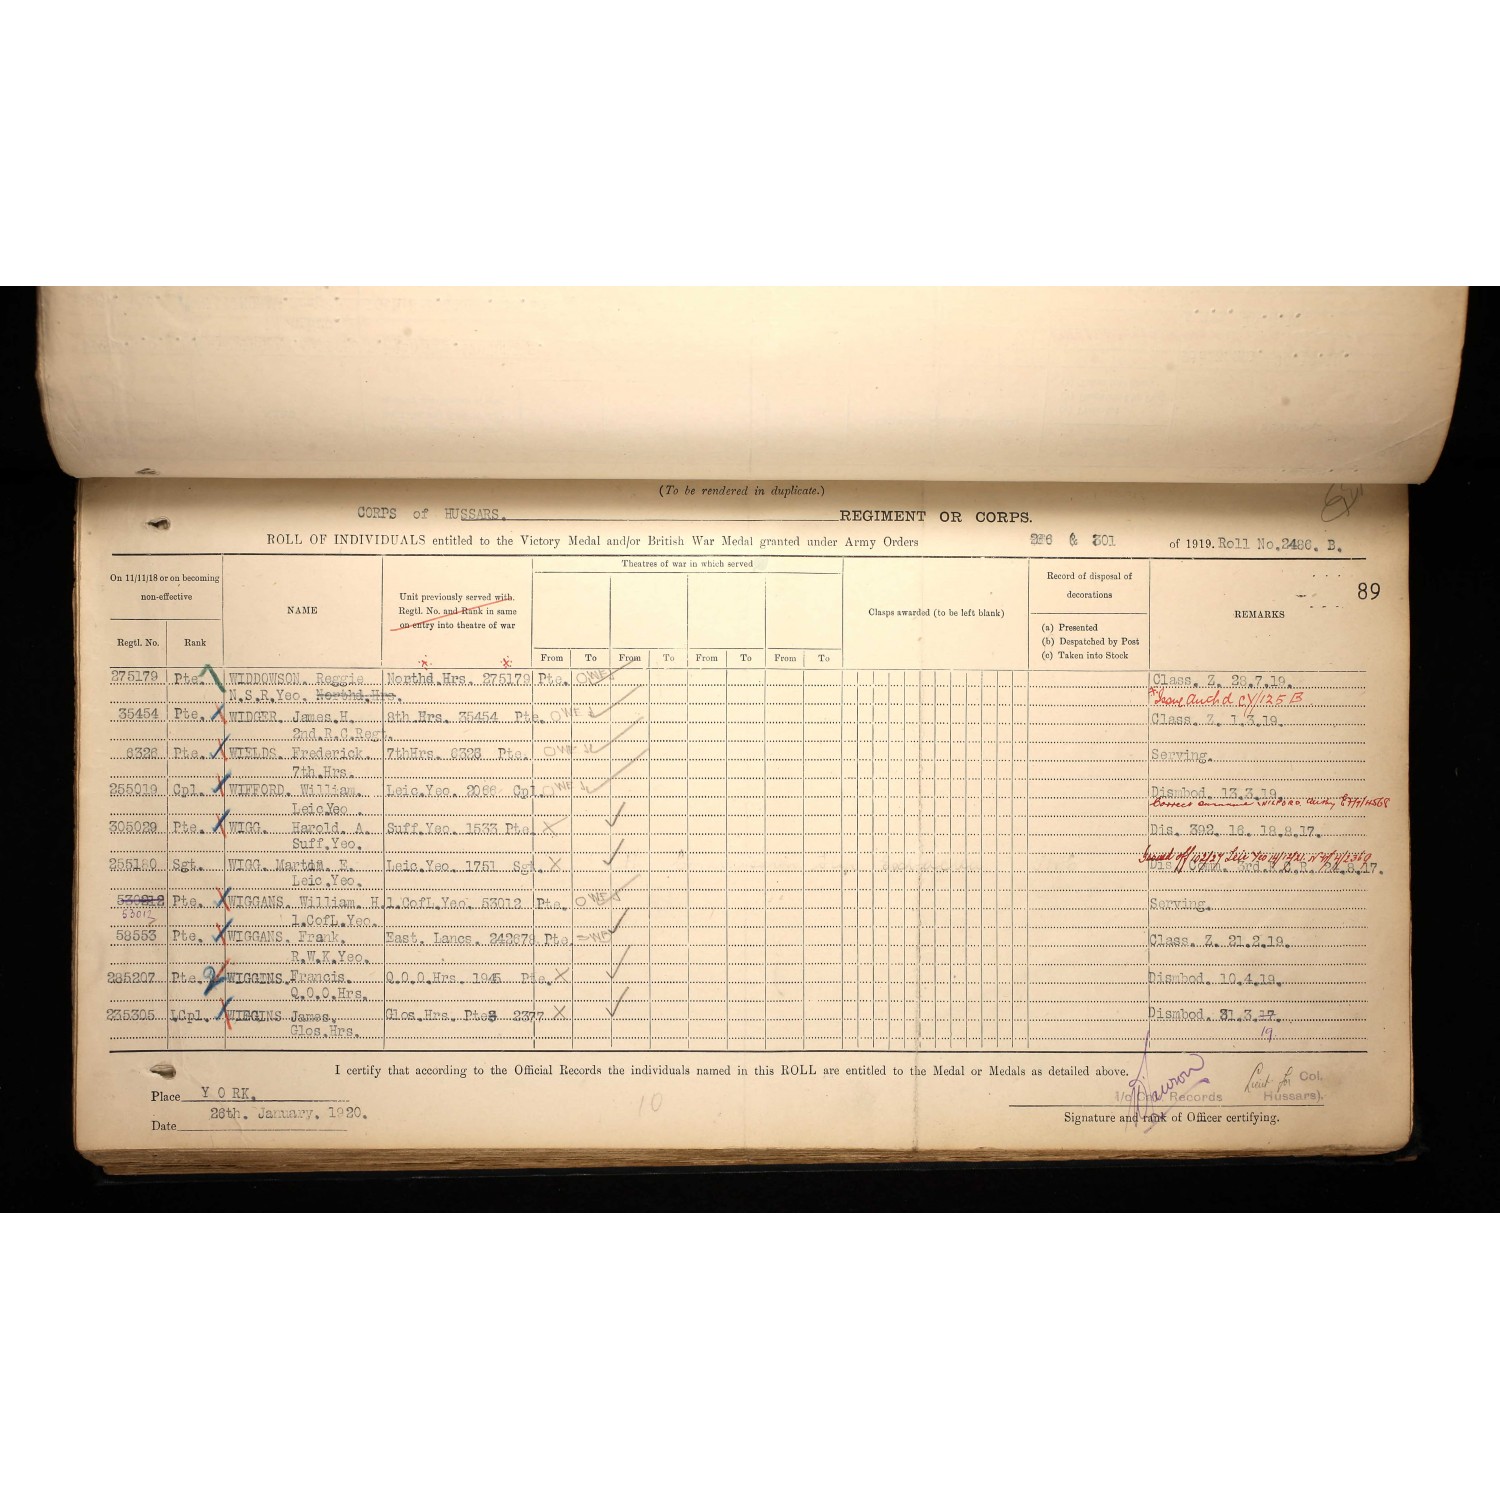 (To be rendered in duplicate.)
CORPS of HUSSARS. REGIMENT OR CORPS.
ROLL OF INDIVIDUALS entitled to the Victory Medal and/or British War Medal granted under Army Orders & 301 of 1919. Roll No. 2486. B.
89
On 11/11/18 or on becoming non-effective
Regtl. No. Rank
NAME
Unit previously served with. Regtl. No. and Rank in same on entry into theatre of war
Theatres of war in which served
From To From To From To From To
Clasps awarded (to be left blank)
Record of disposal of decorations
(a) Presented
(b) Despatched by Post
(c) Taken into Stock
REMARKS
275179 Pte. WIDDOWSON. Reggie Northd.Hrs. 275179 Pte. Class. Z. 28.7.19.
N.S.R.Yeo. Northd.Hrs. Issue Auchd CY/125 B
35454 Pte. WIDGER. James.H. 8th.Hrs. 35454 Pte. Class. Z. 1.3.19.
2nd.R.C.Regt.
6326 Pte. WIELDS. Frederick. 7thHrs. 6326 Pte. Serving.
7th.Hrs.
255019 Cpl. WIFFORD. William. Leic.Yeo. 2066 Cpl. Dismbod. 13.3.19.
Leic.Yeo.
305029 Pte. WIGG. Harold. A. Suff.Yeo. 1533 Pte. X Dis. 392. 16. 18.8.17.
Suff.Yeo.
255180 Sgt. WIGG. Martin. E. Leic.Yeo. 1751 Sgt. X
Leic.Yeo.
Pte. WIGGANS. William. H. 1.CofL.Yeo. 53012 Pte. Serving.
53012 1.CofL.Yeo.
58553 Pte. WIGGANS. Frank. East. Lancs. 242678 Pte. Class. Z. 21.2.19.
R.W.K.Yeo.
285207 Pte. WIGGINS. Francis. Q.O.O.Hrs. 1945 Pte. X Dismbod. 10.4.19.
Q.O.O.Hrs.
235305 LCpl. WIGGINS. James. Glos.Hrs. Pte 2377 X Dismbod. 31.3.17.
Glos.Hrs. 19.
I certify that according to the Official Records the individuals named in this ROLL are entitled to the Medal or Medals as detailed above.
Place YORK.
26th. January. 1920.
Date
10
Lieut. for Col.
Records Hussars).
Signature and rank of Officer certifying.